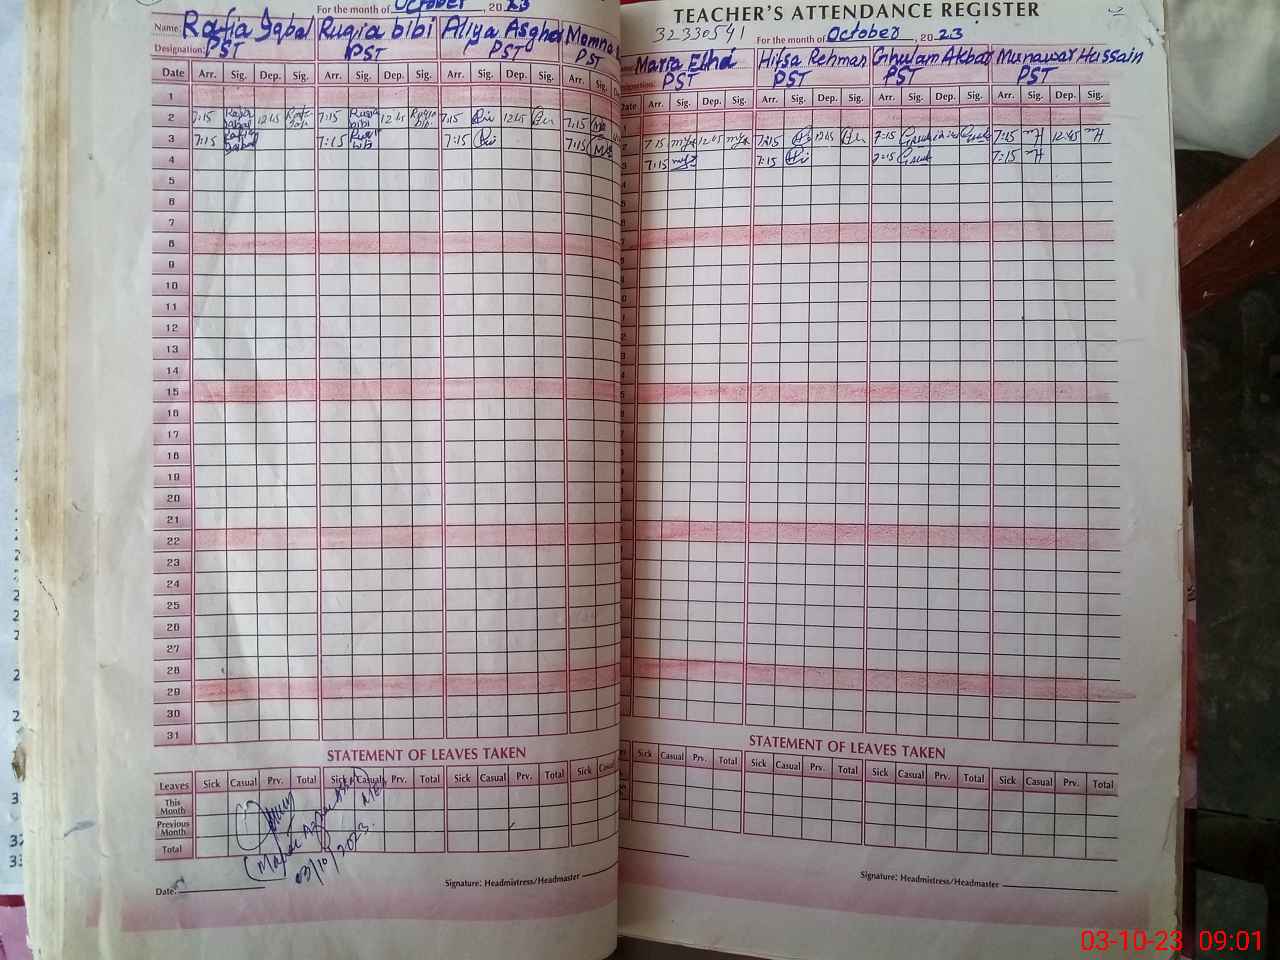 For the month of October, 2023
Name: Rafia Iqbal Ruqia bibi Aliya Asghar Momna
Designation: PST PST PST PST
Date Arr. Sig. Dep. Sig. Arr. Sig. Dep. Sig. Arr. Sig. Dep. Sig. Arr. Sig.
1
2 7:15 Rafia Iqbal 12 45 7:15 Ruqia bibi 12 45 Ruqia bibi 7:15 12 45 7:15
3 7:15 Rafia Iqbal 7:15 Ruqia bibi 7:15 7:15
4
5
6
7
8
9
10
11
12
13
14
15
16
17
18
19
20
21
22
23
24
25
26
27
28
29
30
31
STATEMENT OF LEAVES TAKEN
Leaves Sick Casual Prv. Total Sick Casual Prv. Total Sick Casual Prv. Total Sick Casual
This Month
Previous Month
Total
03/10/2023
Date:
Signature: Headmistress/Headmaster
TEACHER'S ATTENDANCE REGISTER
32330541
For the month of October, 2023
Maria Elahi Hifsa Rehman Ghulam Akbar Munawar Hussain
PST PST PST PST
Date Arr. Sig. Dep. Sig. Arr. Sig. Dep. Sig. Arr. Sig. Dep. Sig. Arr. Sig. Dep. Sig.
7:15 12 45 7:15 12 45 7:15 7:15 MH 12:45 MH
7:15 7:15 7:15 7:15 MH
STATEMENT OF LEAVES TAKEN
Sick Casual Prv. Total Sick Casual Prv. Total Sick Casual Prv. Total Sick Casual Prv. Total
Signature: Headmistress/Headmaster
03-10-23 09:01